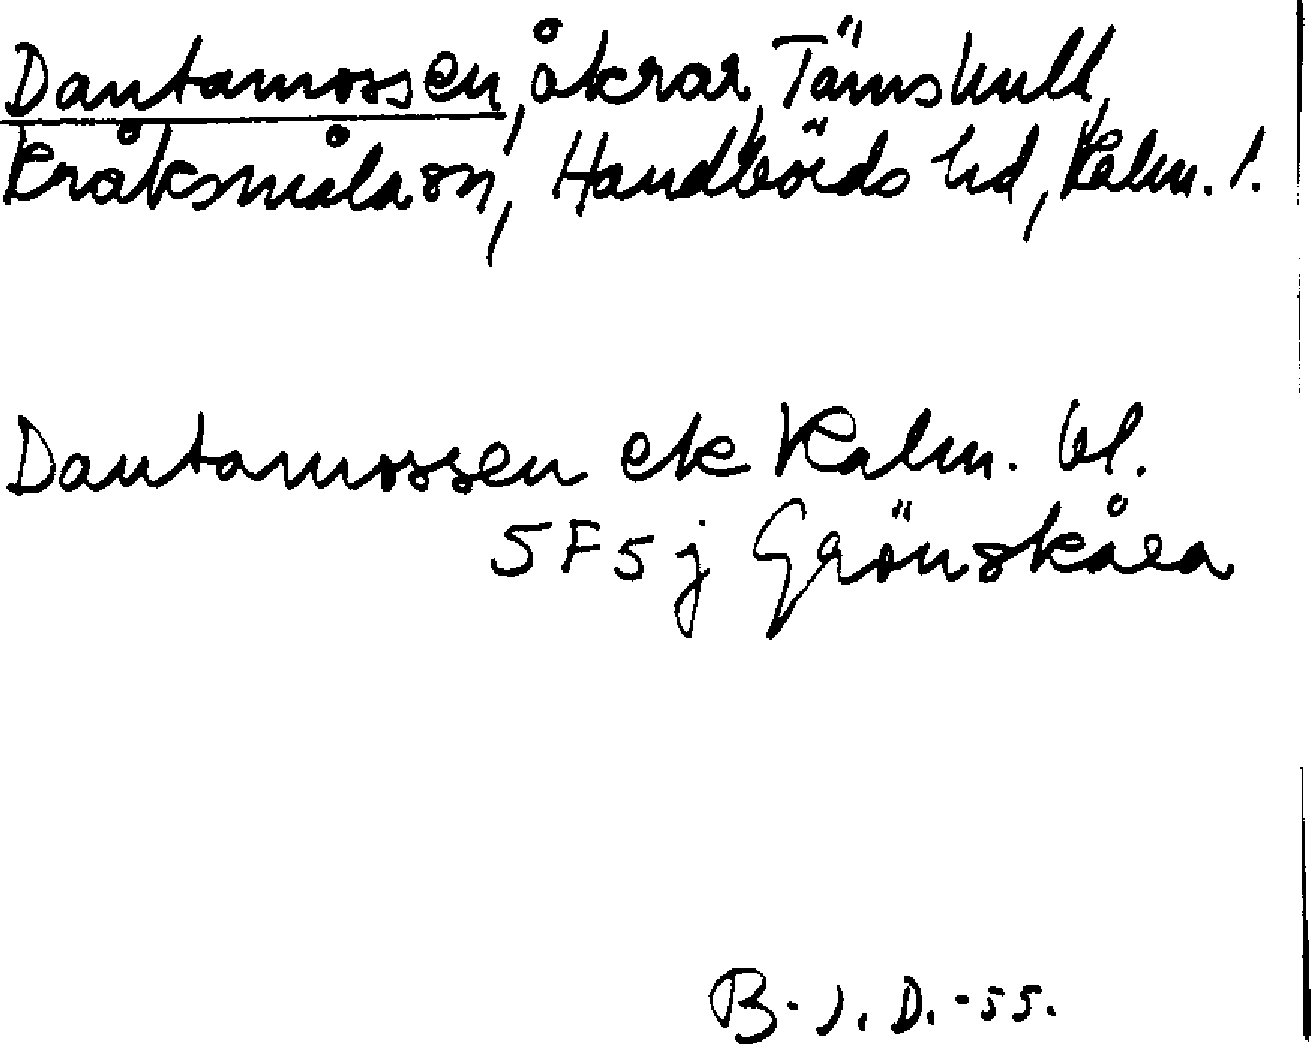 Dantamossen, åkrar, Tämshult,
Kråksmåla sn, Handbörds hd, Kalm. l.
Dantamossen ek Kalm. bl.
5F5j Grönskåra
B. J. D. -55.